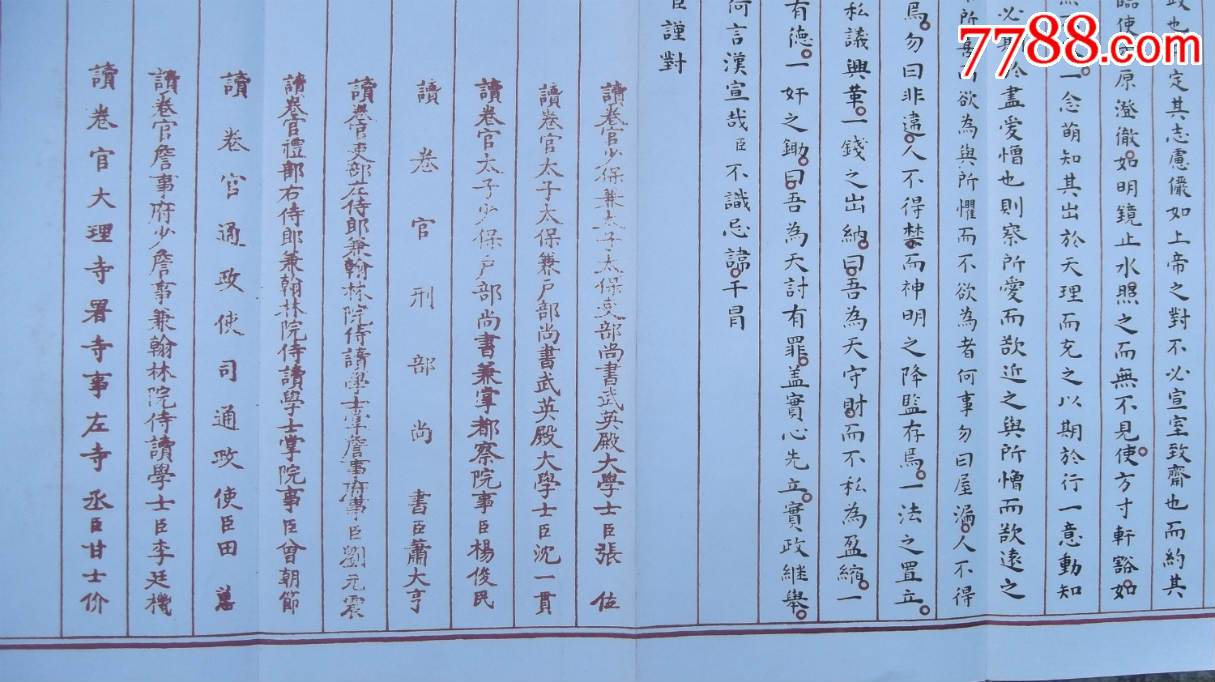 政也定其志慮儼如上帝之對不必宣室致齋也而約其
臨使 原澄徹如明鏡止水照之而無不見使方寸軒豁如
一念萌知其出於天理而充之以期於行一意動知
必期於盡愛憎也則察所愛而欲近之與所憎而欲遠之
所喜而欲為與所懼而不欲為者何事勿曰屋漏人不得
焉勿曰非違人不得禁而神明之降監存焉一法之置立
私議興革一錢之出納曰吾為天守財而不私為盈縮一
有德一奸之鋤曰吾為天討有罪盖實心先立實政繼舉
何言漢宣哉臣不識忌諱干冒
臣謹對
讀卷官少保兼太子太保吏部尚書武英殿大學士臣張位
讀卷官太子太保兼戶部尚書武英殿大學士臣沈一貫
讀卷官太子少保戶部尚書兼掌都察院事臣楊俊民
讀卷官刑部尚書臣蕭大亨
讀卷官吏部左侍郎兼翰林院侍讀學士掌詹事府事臣劉元震
讀卷官禮部右侍郎兼翰林院侍讀學士掌院事臣曾朝節
讀卷官通政使司通政使臣田蕙
讀卷官詹事府少詹事兼翰林院侍讀學士臣李廷機
讀卷官大理寺署寺事左寺丞臣甘士价
7788.com